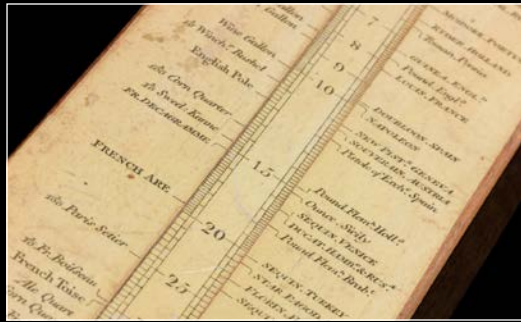 Gallon
Wine Gallon
Winchr. Bushel
English Pole
Corn Quarter
Swed. Kanne
FR. DECAGRAMME
FRENCH ARE
Paris Setier
Fr. Boisseau
French Toise
Ale Quart
Corn
7
8
9
10
15
20
25
RYDER. HOLLAND
GUINEA. ENGLD.
Pound. Engld.
LOUIS. FRANCE
DOUBLOON. SPAIN
NAPOLEON
NEW PIST. GENEVA
SOUVERAIN. AUSTRIA
Pistole of Exche. Spain
Pound Flemh. Holld.
Ounce Sicily
SEQUIN. VENICE
DUCAT. HAMB. & RUSa.
Pound Flemh. Brabt.
SEQUIN. TURKEY
STAR PAGODA
FLORIN.
SEQUIN